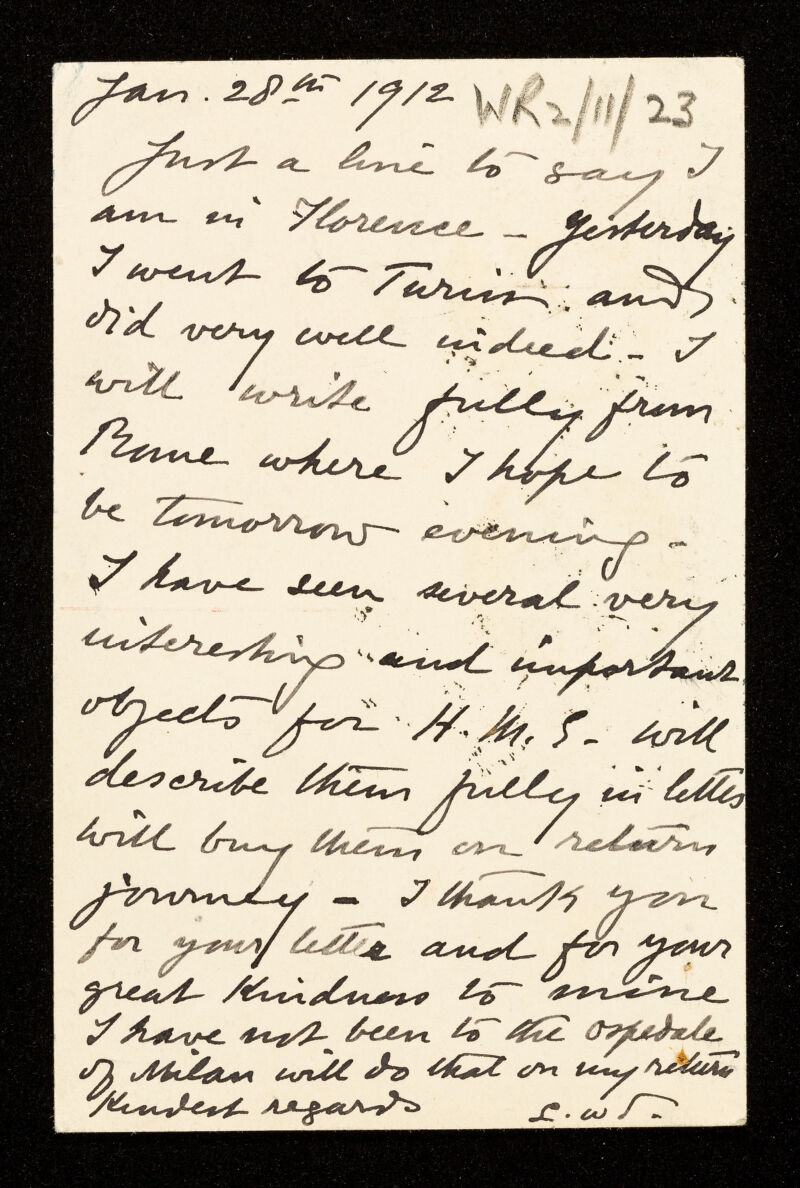 Jan. 28th 1912 WR2/11/23
Just a line to say I
am in Florence - yesterday
I went to Turin and
did very well indeed - I
will write fully from
Rome where I hope to
be tomorrow evening -
I have seen several very
interesting and important
objects for H.M.S. - will
describe them fully in letter
will buy them on return
journey - I thank you
for your letter and for your
great kindness to mine
I have not been to the ospedale
of Milan will do that on my return
Kindest regards